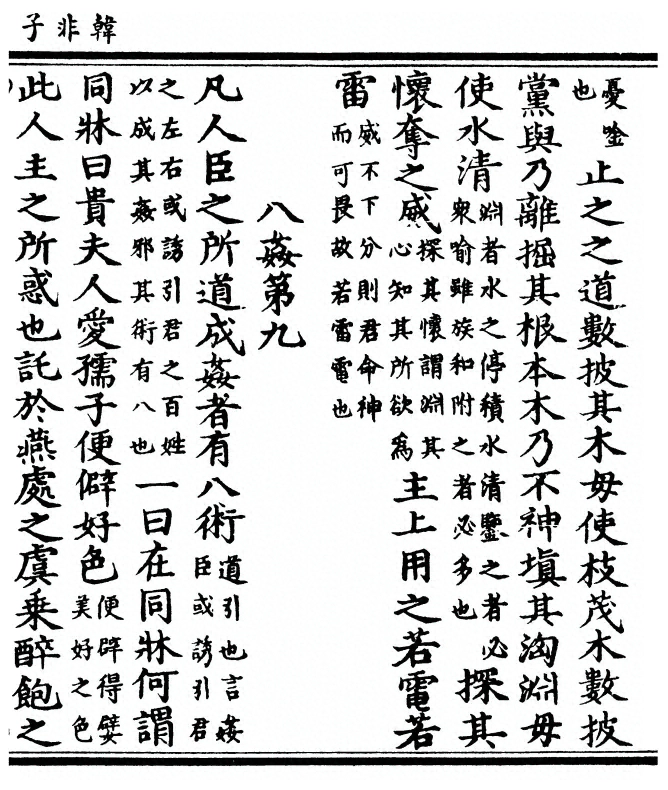 韓非子
憂唫也止之之道數披其木毋使枝茂木數披
黨與乃離掘其根本木乃不神塡其洶淵毋
使水清淵者水之停積水清鑒之者必衆喻雖族和附之者必多也探其
懷奪之威探其懷謂淵其心知其所欲爲主上用之若電若
雷威不下分則君命神而可畏故若雷電也
八姦第九
凡人臣之所道成姦者有八術道引也言姦臣或誘引君
之左右或誘引君之百姓以成其姦邪其術有八也一曰在同牀何謂
同牀曰貴夫人愛孺子便僻好色便辟得嬖美好之色
此人主之所惑也託於燕處之虞乘醉飽之